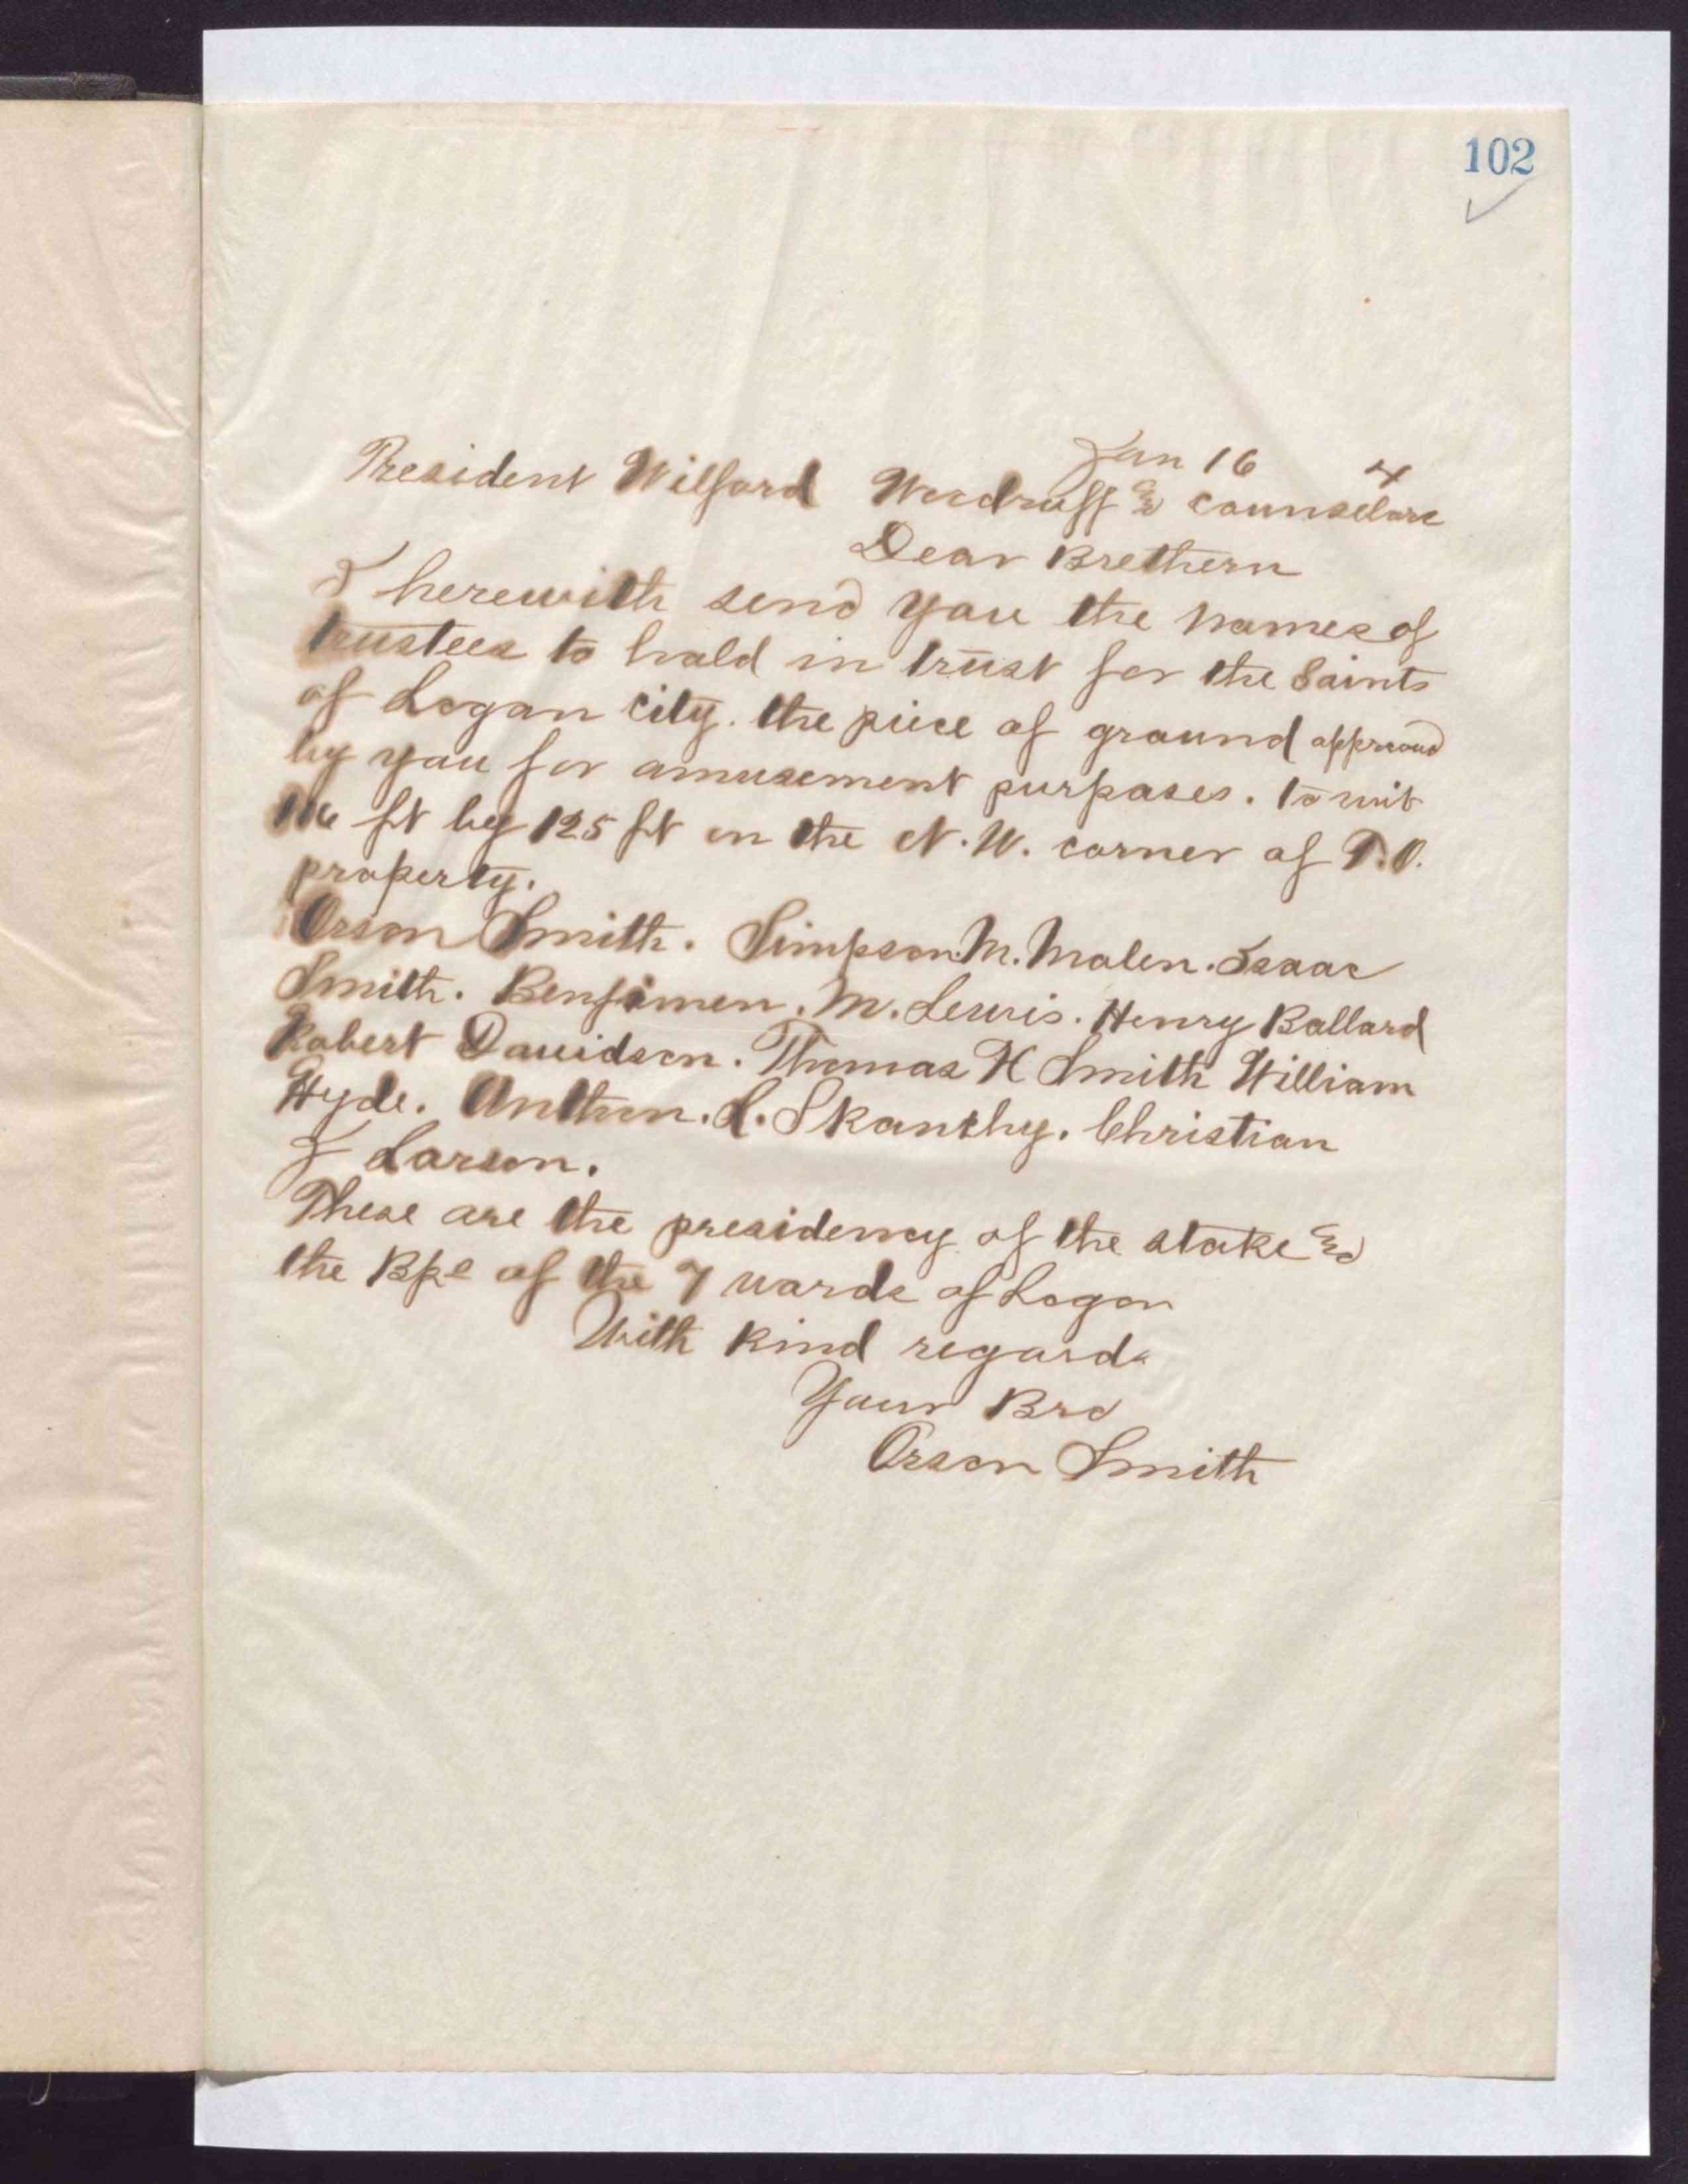 102
Jan 16 4
President Wilford Woodruff & counselors
Dear Brethern
I herewith send you the names of
trustees to hold in trust for the Saints
of Logan city. the piece of ground approved
by you for amusement purposes. to wit
116 ft by 125 ft on the N.W. corner of T.O.
property.
Orson Smith. Simpson M. Molen. Isaac
Smith. Benjimen. M. Lewis. Henry Ballard
Robert Davidson. Thomas X Smith William
Hyde. Anthon. L. Skanchy. Christian
J Larson.
These are the presidency of the stake &
the Bps of the 7 wards of Logan
With kind regards
Your Bro
Orson Smith